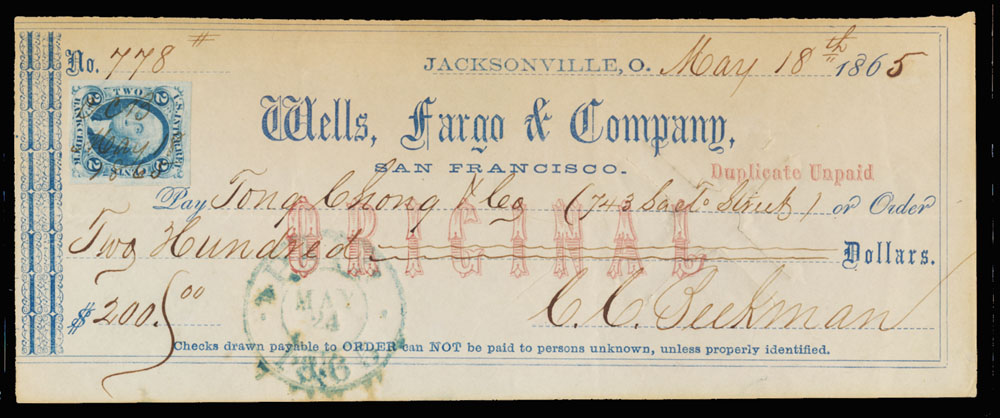 No. 778 #
JACKSONVILLE, O. May 18th 1865
Wells, Fargo & Company,
SAN FRANCISCO.
Duplicate Unpaid
Pay Tong Chong & Co (743 Sacto Street) or Order
ORIGINAL
Two Hundred Dollars.
$ 200.00
C. C. Beekman
MAY
24
Checks drawn payable to ORDER can NOT be paid to persons unknown, unless properly identified.